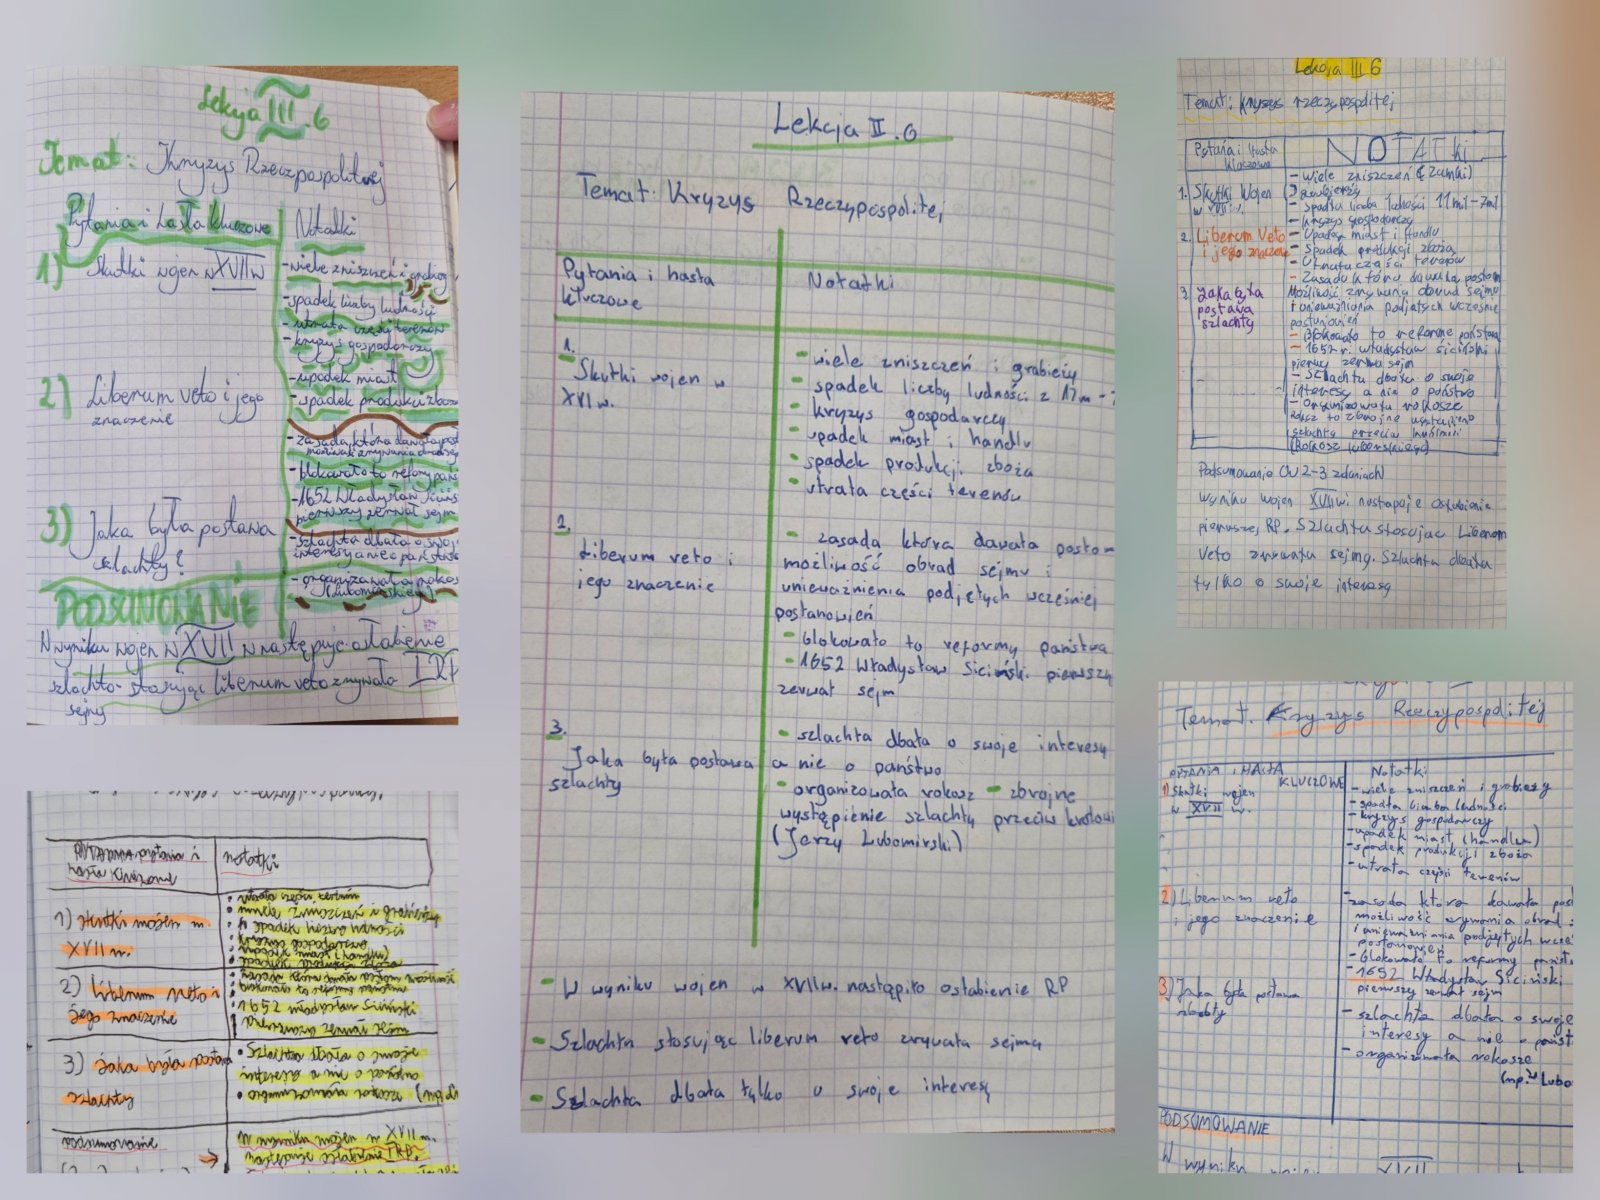 Lekcja III.6
Temat: Kryzys Rzeczpospolitej
Pytania i hasła kluczowe
Notatki
1) Skutki wojen w XVII w
- wiele zniszczeń i
- spadek liczby ludności
- utrata części terenów
- kryzys gospodarczy
- upadek miast
- spadek produkcji zboża
2) Liberum veto i jego
znaczenie
- zasada, która dawała
- blokowało to reformy
- 1652 Władysław
pierwszy zerwał sejm
3) Jaka była postawa
szlachty?
- szlachta dbała o swoje
interesy a nie o państwo
- organizowała
(Lubomirskiego)
PODSUMOWANIE
W wyniku wojen w XVII w następuje osłabienie
I RP
szlachta stosując liberum veto zrywała
sejmy
pytania i
hasła kluczowe
notatki
1) skutki wojen w
XVII w.
• utrata części terenów
• wiele zniszczeń i grabieży
• spadek liczby ludności
2) liberum veto i
jego znaczenie
• 1652 Władysław Siciński
3) Jaka była postawa
szlachty
• Szlachta dbała o swoje
interesy a nie o
podsumowanie
W wyniku wojen w XVII w.
Lekcja II.6
Temat: Kryzys Rzeczypospolitej
Pytania i hasła
kluczowe
Notatki
1.
Skutki wojen w
XVI w.
- wiele zniszczeń i grabieży
- spadek liczby ludności z 11m -
- kryzys gospodarczy
- upadek miast i handlu
- spadek produkcji zboża
- utrata części terenów
2.
Liberum veto i
jego znaczenie
- zasada która dawała posło-
możliwość obrad sejmu i
unieważnienia podjętych wcześniej
postanowień
- blokowało to reformy państwa
- 1652 Władysław Siciński pierwszy
zerwał sejm
3.
Jaka była postawa
szlachty
- szlachta dbała o swoje interesy
a nie o państwo
- organizowała rokosz - zbrojne
wystąpienie szlachty przeciw królowi
(Jerzy Lubomirski)
- W wyniku wojen w XVII w. nastąpiło osłabienie RP
- Szlachta stosując liberum veto zrywała sejmy
- Szlachta dbała tylko o swoje interesy
Lekcja III 6
Temat: Kryzys rzeczpospolitej
Pytania i hasła
kluczowe
NOTATKI
1. Skutki Wojen
w XVII w.
- Wiele zniszczeń (Zamki)
- Spadła liczba ludności 11mil-7mil
- Kryzys gospodarczy
- Upadek miast i handlu
- Spadek produkcji zboża
- Utrata części terenów
2. Liberum Veto
i jego znaczenie
- Zasada która dawała posłom
Możliwość zrywania obrad sejmu
i unieważniania podjętych wcześniej
postanowień
- Blokowało to reformę państwa
- 1652 r. Władysław Siciński
pierwszy zerwał sejm
3. Jaka była
postawa
szlachty
- Szlachta dbała o swoje
interesy a nie o państwo
- Organizowała rokosze
Rokosz to zbrojne wystąpienie
szlachty przeciw
(Rokosz Lubomirskiego)
Podsumowanie (W 2-3 zdaniach)
Wyniku wojen XVII w. następuje osłabienie
pierwszej RP. Szlachta stosując Liberum
Veto zrywała sejmy. Szlachta dbała
tylko o swoje interesy
Temat. Kryzys Rzeczypospolitej
PYTANIA I HASŁA
KLUCZOWE
Notatki
1) Skutki wojen
w XVII w.
- wiele zniszczeń i grabieży
- spadła liczba ludności
- kryzys gospodarczy
- upadek miast (handlu)
- spadek produkcji zboża
- utrata części terenów
2) Liberum veto
i jego znaczenie
- zasada która dawała
możliwość zrywania obrad
i unieważniania podjętych
postanowień
- blokowała to reformy
- 1652 Władysław Siciński
pierwszy zerwał sejm
3) Jaka była postawa
- szlachta dbała o swoje
interesy a nie o
- organizowała rokosze
(np.
PODSUMOWANIE
W wyniku
XVII